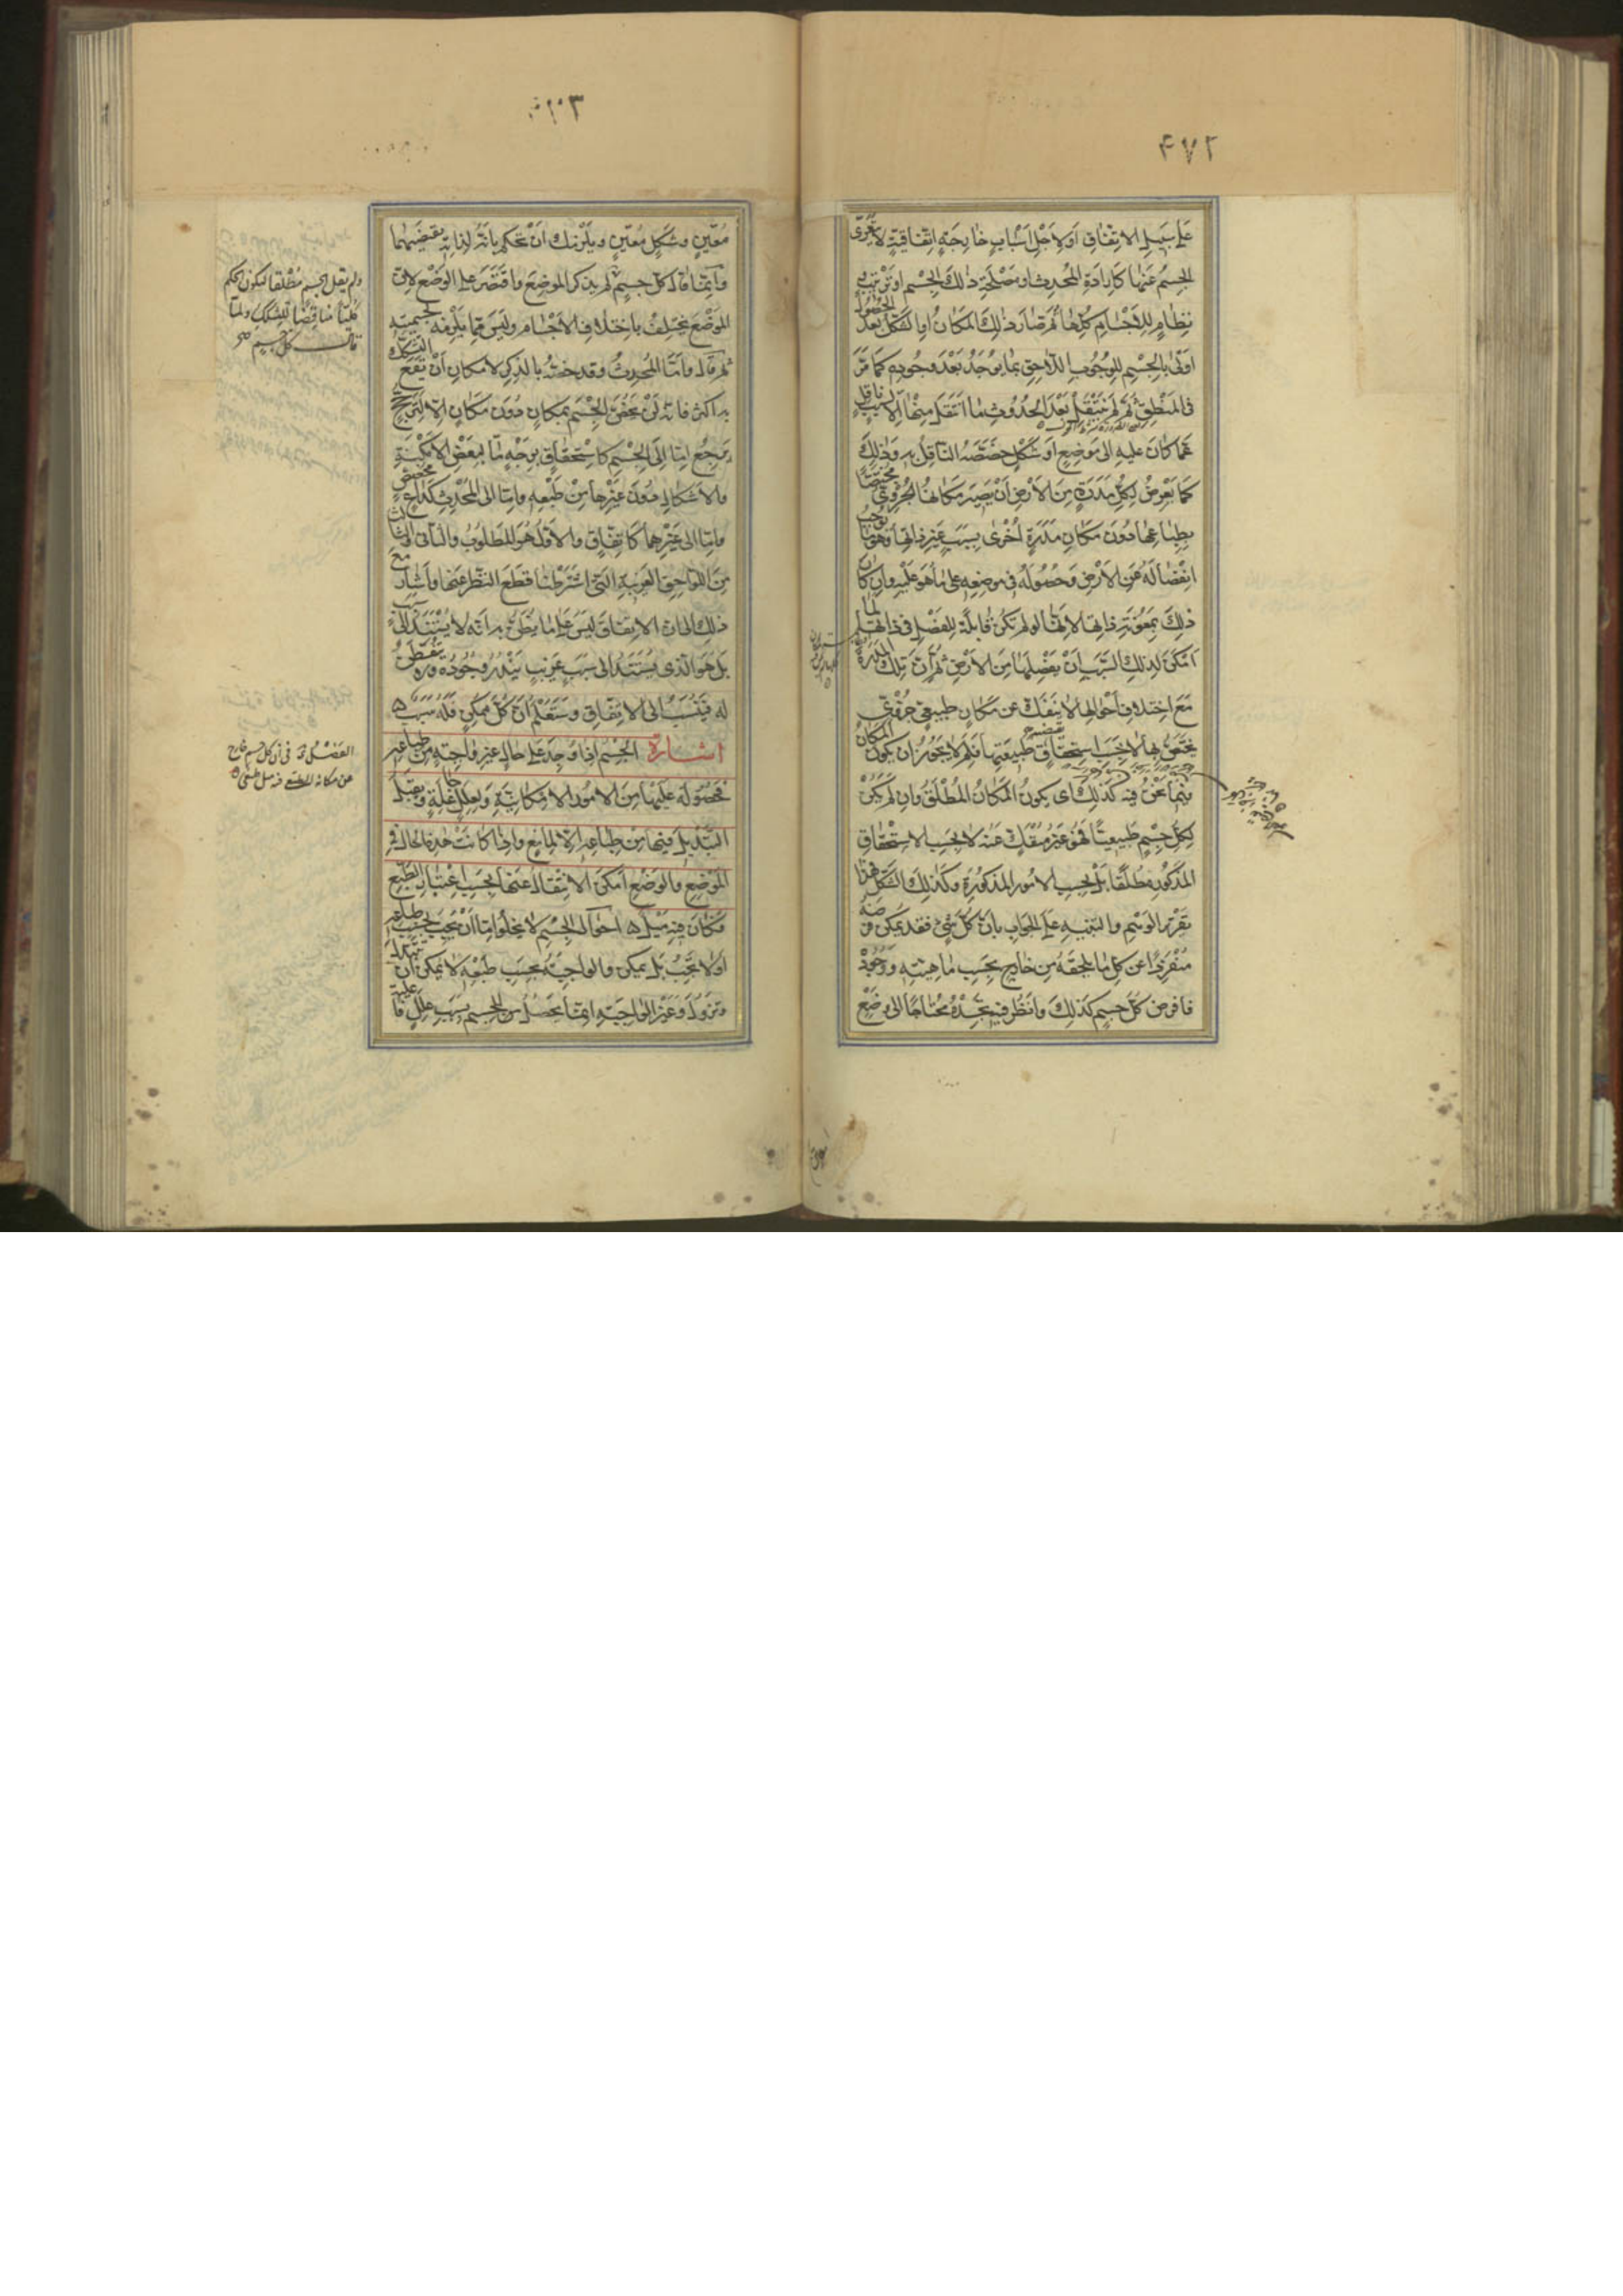 ٤٧٢
على سبيل الاتفاق او لاجل اسباب خارجة اتفاقية لا يعرى
الجسم عنها كارادة المحدث او مصلحة ذلك الجسم او ترتيب
نظام للاجسام كلها ثم صار ذلك المكان او الشكل بعد الحصول
اولى بالجسم للوجوب اللاحق بما يوجد بعد وجوده كما مر
فى المنطق ثم لم ينتقل بعد الحدوث فما انتقل منها الا بسبب ناقل
عما كان عليه الى موضع او شكل خصصه الناقل به وذلك
كما يعرض لكل مدرة من الارض ان يصير مكانها الجزوى مختصا
بطباعها دون مكان مدرة اخرى بسبب غير ذاتها وهو ما يوجب
انفصاله من الارض وحصوله فى موضعه على ما هو عليه وان كان
ذلك بمعونة ذاتها لانها لو لم تكن قابلة للفصل فى ذاتها لما
امكن لذلك السبب ان يفصلها من الارض ثم ان تلك المدرة
مع اختلاف احوالها لا ينفك عن مكان طبيعى جزوى
يختص بها لا بحسب استحقاق طبيعتها فلم لا يجوز ان يكون المكان
فيما نحن فيه كذلك اى يكون المكان المطلق وان لم يكن
لكل جسم طبيعيا فهو غير منفك عنه لا بحسب الاستحقاق
المذكور مطلقا بل بحسب الامور المذكورة وكذلك الشكل فهذا
تقرير الوهم والتنبيه على الجواب بان كل شئ فقد يمكن فرضه
منفردا عن كل ما يلحقه من خارج بحسب ماهيته ووجوده
فافرض كل جسم كذلك وانظر فيه تجده محتاجا الى وضع
معين وشكل معين ويلزمك ان تحكم بانه لذاته يقتضيهما
وانما قال كل جسم لم يذكر الموضع واقتصر على الوضع لان
الموضع يختلف باختلاف الاجسام وليس مما يلزمه لجسميته
ثم قال واما المحدث وقد خصه بالذكر لامكان ان يقع التشكك
به اكثر فانه لن يخص الجسم بمكان دون مكان الا لترجيح
يرجع اما الى الجسم كاستحقاق بوجه ما لبعض الامكنة
والاشكال دون غيرها من طبعه واما الى المحدث كداع مخصص
واما الى غيرهما كاتفاق والاول هو المطلوب والثانى والثالث
من اللواحق الغريبة التى اشترطنا قطع النظر عنها واشار مع
ذلك الى ان الاتفاق ليس على ما يظن به انه لا يستند الى سبب
بل هو الذى يستند الى سبب غريب يندر وجوده ولا يتفطن
له فينسب الى الاتفاق وستعلم ان كل ممكن فله سبب
اشارة الجسم اذا وجد على حال غير واجبة من طباعه
فحصوله عليها من الامور الامكانية ولعلل جاعلة ويقبل
التبديل فيها من طباعه الا لمانع واذا كانت هذه الحال فى
الموضع والوضع امكن الانتقال عنها بحسب اعتبار الطبع
فكان فيه ميل احوال الجسم لا يخلوا اما ان يجب بحسب طباعه
او لا يجب بل يمكن والواجبة بحسب طبعه لا يمكن ان تتبدل
وتزول وغير الواجبة انما يحصل للجسم بسبب علل فاعلية
ولم يقل الجسم مطلقا ليكون الحكم
كليا مناقضا للتشكك ولما
قال كل جسم صح